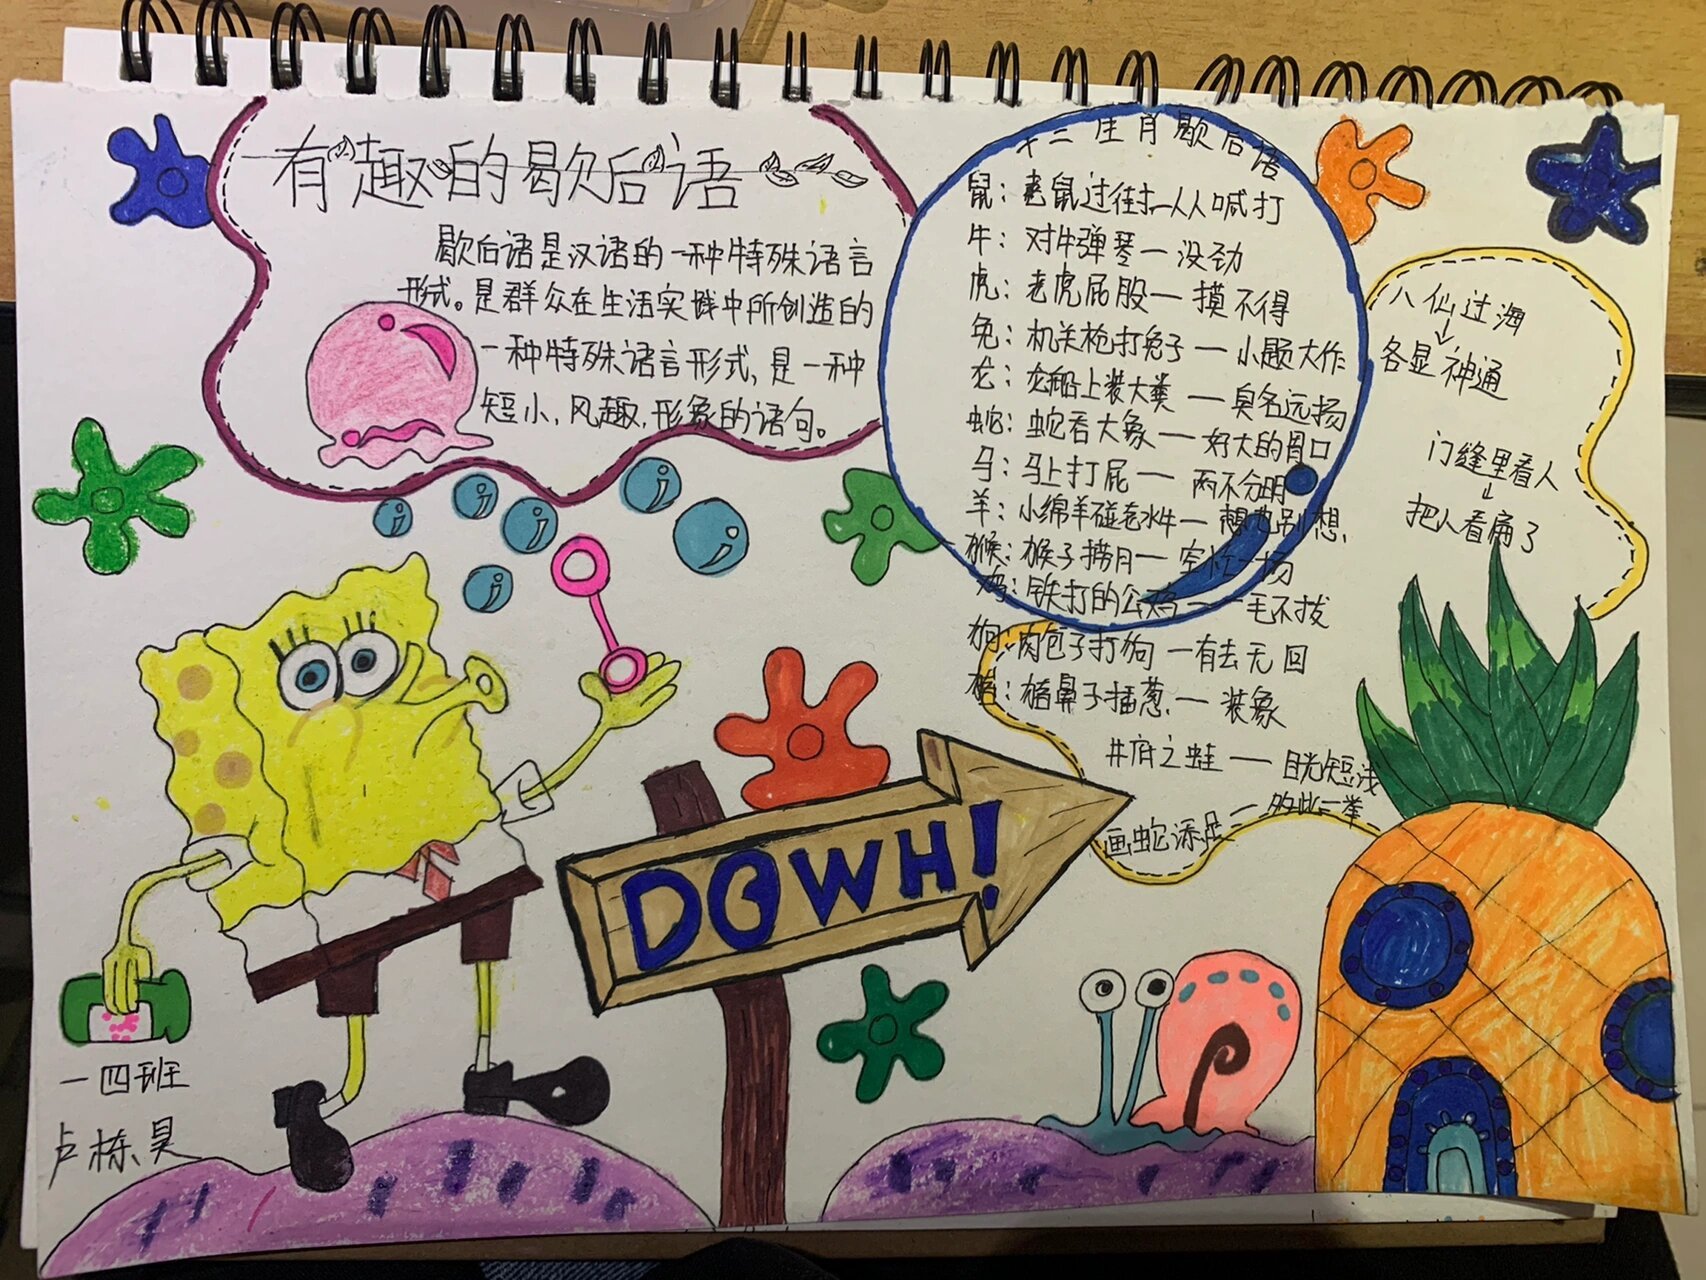 有趣的歇后语
歇后语是汉语的一种特殊语言
形式。是群众在生活实践中所创造的
一种特殊语言形式,是一种
短小,风趣,形象的语句。
十二生肖歇后语
鼠:老鼠过街—人人喊打
牛:对牛弹琴—没劲
虎:老虎屁股—摸不得
兔:机关枪打兔子—小题大作
龙:龙船上装大粪—臭名远扬
蛇:蛇吞大象—好大的胃口
马:马上打屁—两不分明
羊:小绵羊碰老水牛—想也别想,
猴:猴子捞月—空忙一场
鸡:铁打的公鸡—一毛不拔
狗:肉包子打狗—有去无回
猪:猪鼻子插葱—装象
井底之蛙—目光短浅
画蛇添足—多此一举
八仙过海
↓
各显神通
门缝里看人
↓
把人看扁了
DOWH!
一四班
卢栋昊